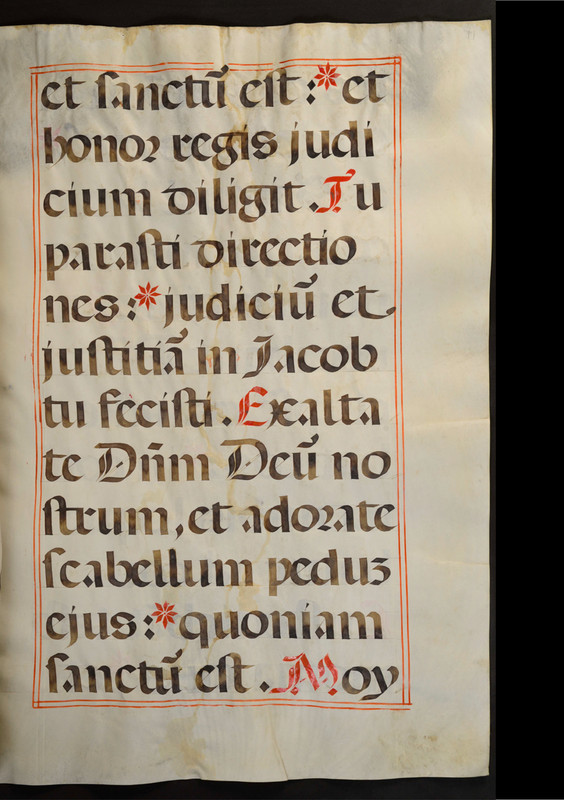 et sanctū est :* et
honor regis judi
cium diligit . Tu
parasti directio
nes :* judiciū et
justitiā in Jacob
tu fecisti . Exalta
te Dñm Deū no
strum, et adorate
scabellum peduʒ
ejus :* quoniam
sanctū est . Moy